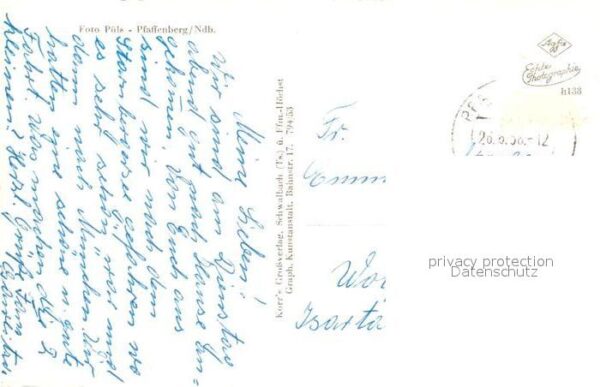 Foto Püls - Pfaffenberg/Ndb.
Meine Lieben!
Wir sind am Dienstag
abend gut nach Hause ge=
kommen. Von Euch aus
sind wir nach dem
Starnbergersee gefahren wo
es sehr schön war und
dann nach München. Wir
hatten eine schöne u. gute
Fahrt. Was machen die 2
kleinen? Herzl. Grüße
Korr's Großverlag, Schwalbach (Ts.) ü. Ffm.-Höchst
Graph. Kunstanstalt, Bahnstr. 17. 794/53
Agfa
Echte
Photographie
h138
26.6.56.-12
Fr.
Emm
Wo
Isarta
privacy protection
Datenschutz